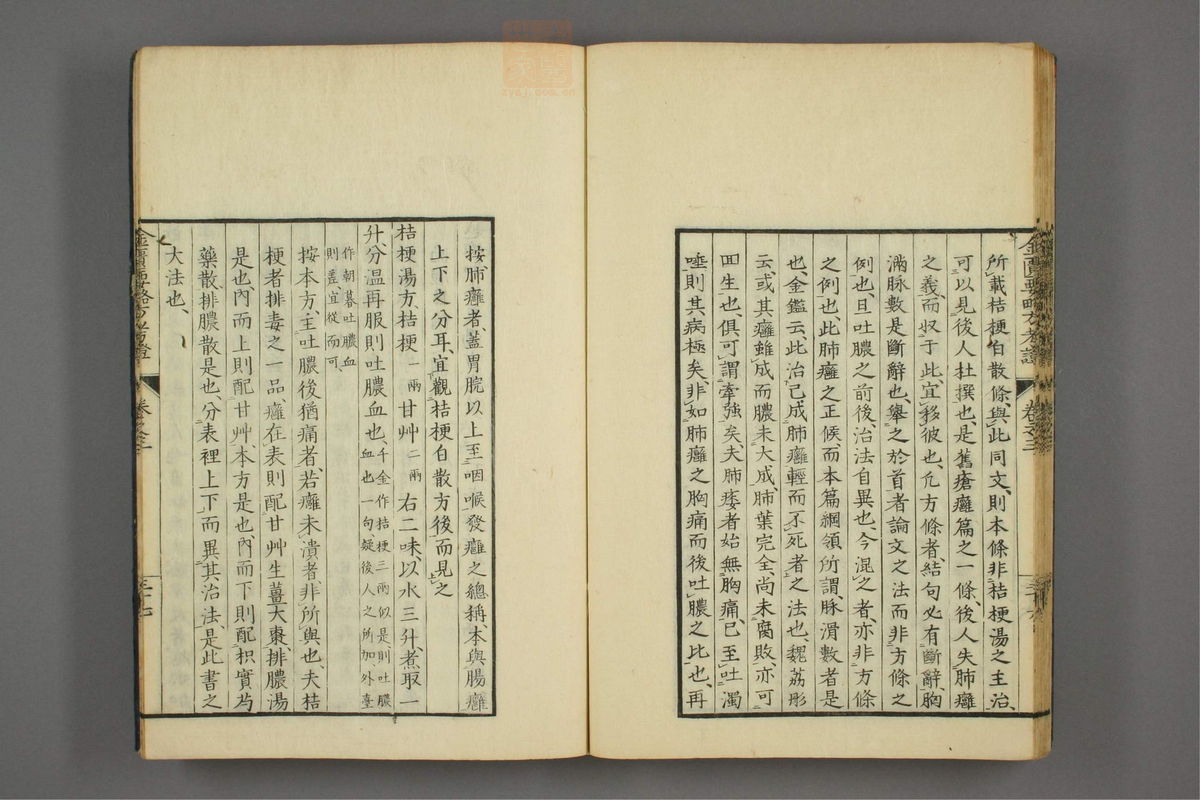 所載桔梗白散條與此同文、則本條非桔梗湯之主治、
可以見後人杜撰也、是舊瘡癰篇之一條、後人失肺癰
之義、而収于此、宜移彼也、凢方條者、結句必有斷辭、胸
滿脉數是斷辭也、舉之於首者、論文之法、而非方條之
例也、且吐膿之前後、治法自異也、今混之者、亦非方條
之例也、此肺癰之正候、而本篇綱領、所謂脉滑數者是
也、金鑑云、此治已成肺癰輕而不死者之法也、魏荔彤
云、或其癰雖成而膿未大成、肺葉完全、尚未腐敗、亦可
回生也、俱可謂牽強矣、夫肺痿者始無胸痛、已至吐濁
唾則其病極矣、非如肺癰之胸痛而後吐膿之比也、再
金匱要略方考證
卷之三
按肺癰者、蓋胃脘以上至咽喉發癰之總稱、本與腸癰
上下之分耳、宜觀桔梗白散方後而見之
桔梗湯方、桔梗一兩甘艸二兩右二味、以水三升、煮取一
升、分温再服則吐膿血也、千金作桔梗三兩似是則吐膿
血也一句疑後人之所加、外臺
作朝暮吐膿血
則蓋宜從而可
按本方、主吐膿後猶痛者、若癰未潰者非所與也、夫桔
梗者排毒之一品、癰在表則配甘艸生薑大棗、排膿湯
是也、內而上則配甘艸、本方是也、內而下則配枳實芍
藥散、排膿散是也、分表裡上下、而異其治法、是此書之
大法也、
金匱要略方考證
卷之三